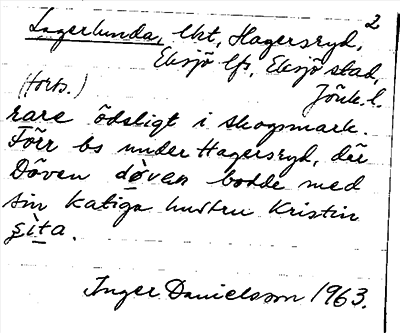 2
Lagerlunda, lht, Hagersryd,
Eksjö lfs, Eksjö stad,
Jönk. l.
(forts.)
rare ödsligt i skogsmark.
Förr bs under Hagersryd, där
Döven dö̀van bodde med
sin katiga hustru Kristin
sìta.
Inger Danielsson 1963.